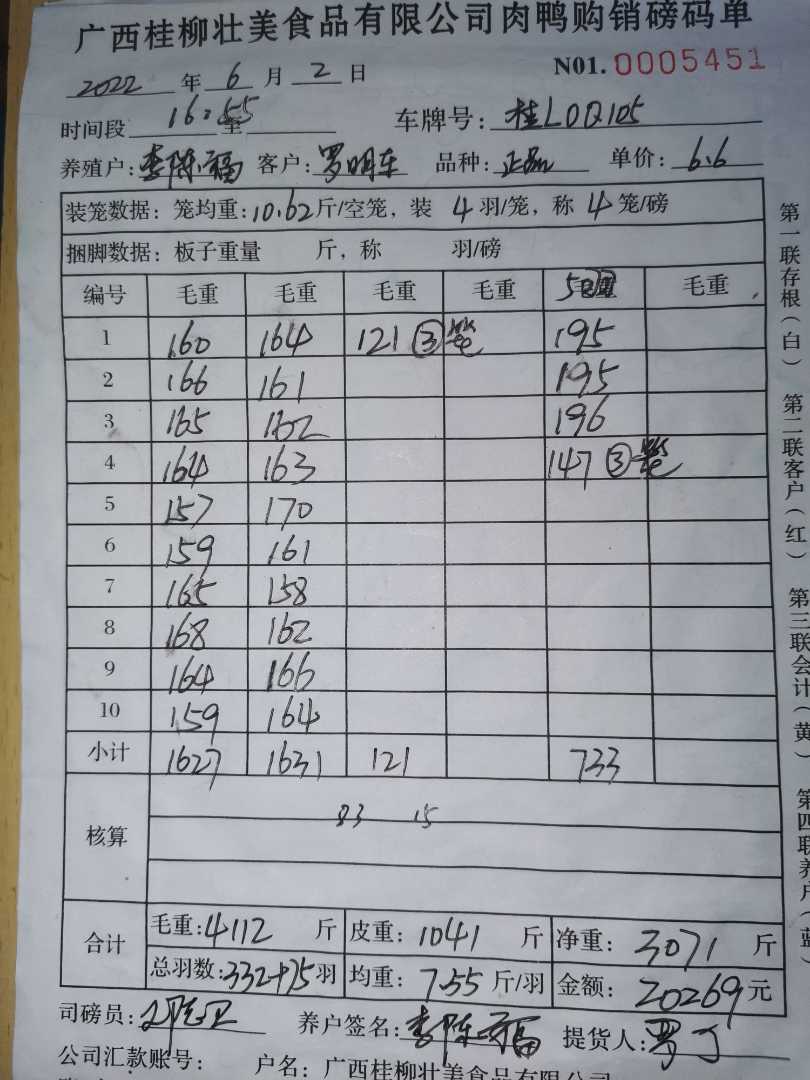 广西桂柳壮美食品有限公司肉鸭购销磅码单
2022 年 6 月 2 日 N01. 0005451
时间段 16:55 至 车牌号: 桂L0Q105
养殖户: 李陈福 客户: 罗明东 品种: 正品 单价: 6.6
装笼数据: 笼均重: 10.62 斤/空笼, 装 4 羽/笼, 称 4 笼/磅
捆脚数据: 板子重量 斤, 称 羽/磅
编号 毛重 毛重 毛重 毛重 5 毛重
1 160 164 121 ③笼 195
2 166 161 195
3 165 162 196
4 164 163 147 ③笼
5 157 170
6 159 161
7 165 158
8 168 162
9 164 166
10 159 164
小计 1627 1631 121 733
核算 83 15
合计 毛重: 4112 斤 皮重: 1041 斤 净重: 3071 斤
总羽数: 332+75 羽 均重: 7.55 斤/羽 金额: 20269 元
司磅员: 养户签名: 李陈福 提货人: 罗
公司汇款账号: 户名: 广西桂柳壮美食品有限公司
第一联存根(白) 第二联客户(红) 第三联会计(黄) 第四联养户(蓝)